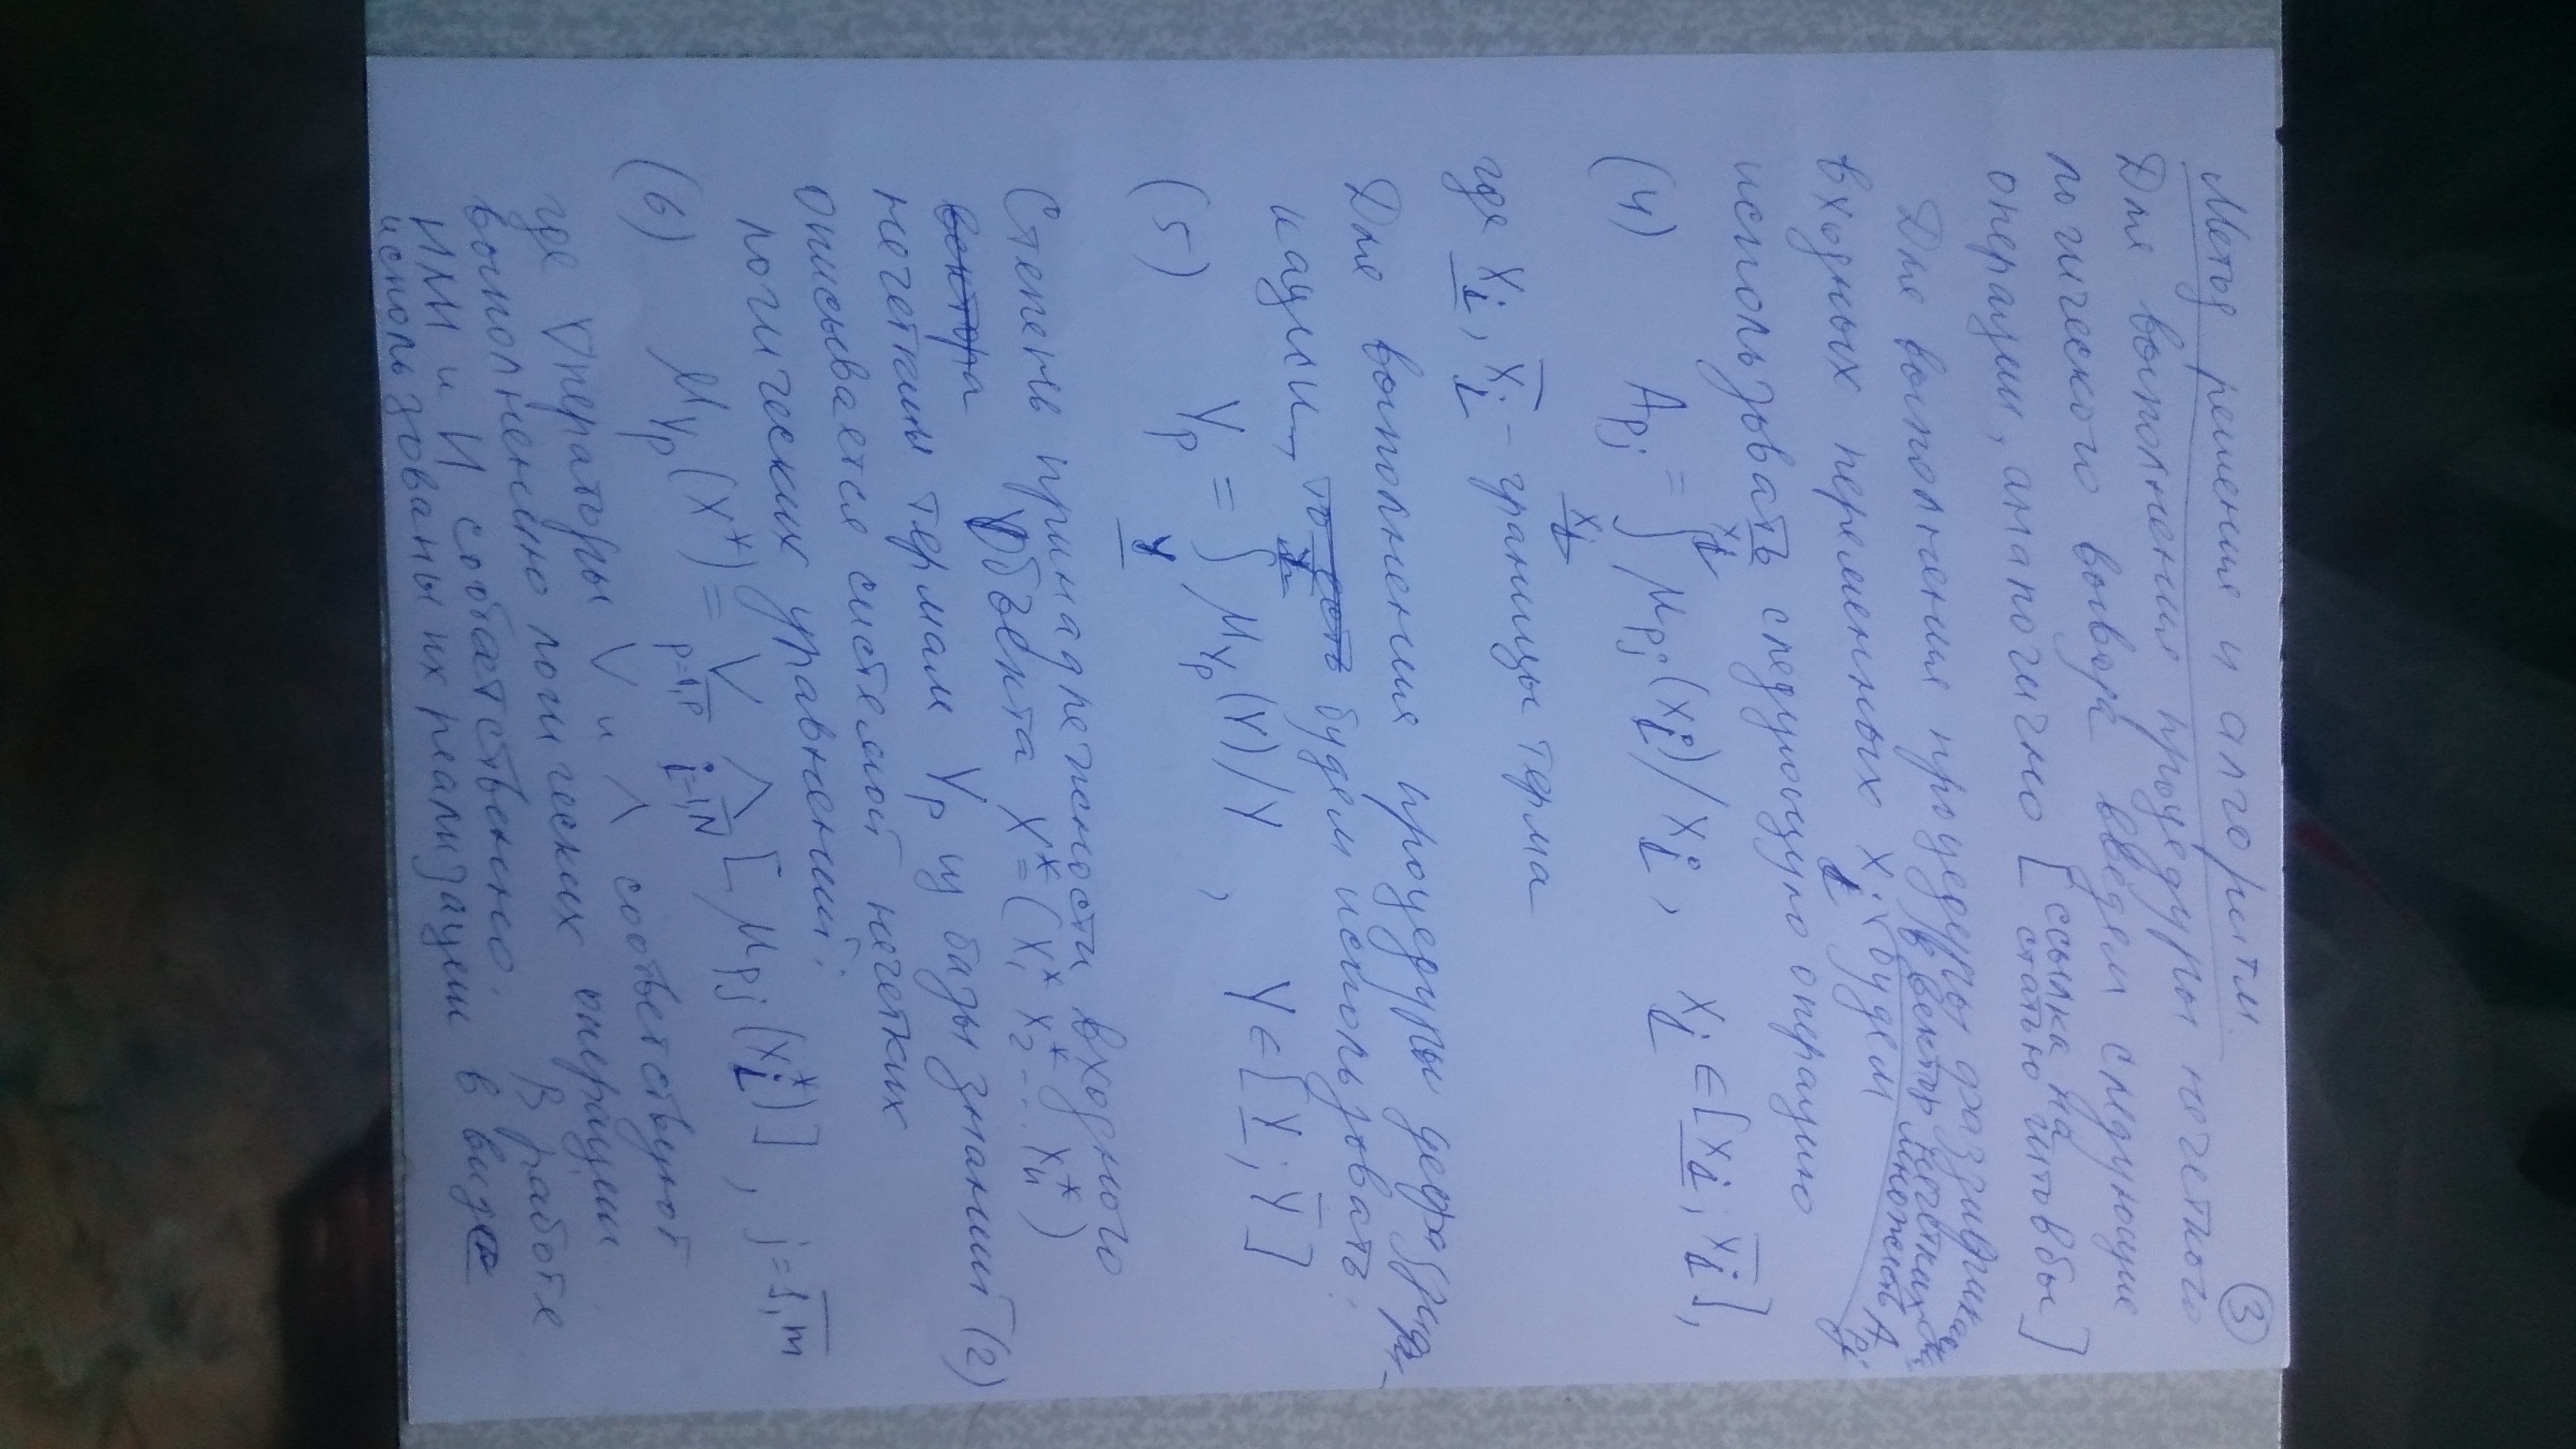 ③
Метод решения и алгоритм.
Для выполнения процедуры нечеткого
логического вывода введем следующие
операции, аналогично [ссылка на статью Митовбы]
Для выполнения процедуры фаззификации
входных переменных x_i в вектор нечетких множеств A_pj будем
использовать следующую операцию
(4) A_pj = ∫_{x̲_i}^{x̄_i} μ_pj(x_i)/x_i, x_i ∈ [x̲_i; x̄_i],
где x̲_i, x̄_i - границы терма
Для выполнения процедуры дефаззифи-
кации, то есть будем использовать:
(5) Y_p = ∫_{Y̲}^{Y̅} μ_Yp(Y)/Y, Y ∈ [Y̲; Y̅]
Степень принадлежности входного
вектора объекта X* = (x₁* x₂* ... x_n*)
нечетким термам Y_p из базы знаний (2)
описывается системой нечетких
логических уравнений:
(6) μ_Yp(X*) = ∨_{p=1,P} ∧_{i=1,N} [μ_pj(x_i*)], j = 1,m
где операторы ∨ и ∧ соответствуют
выполнению логических операции
ИЛИ и И соответственно. В работе
использованы их реализации в виде